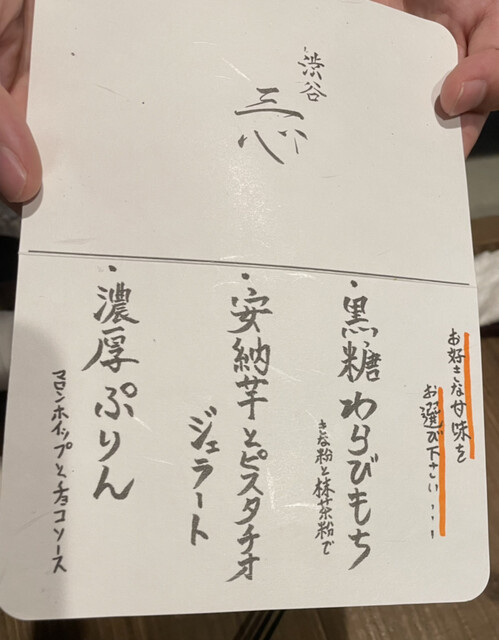 渋谷
三心
お好きな甘味を
お選び下さい...
・黒糖わらびもち
きな粉と抹茶粉で
・安納芋とピスタチオ
ジェラート
・濃厚ぷりん
マロンホイップとチョコソース